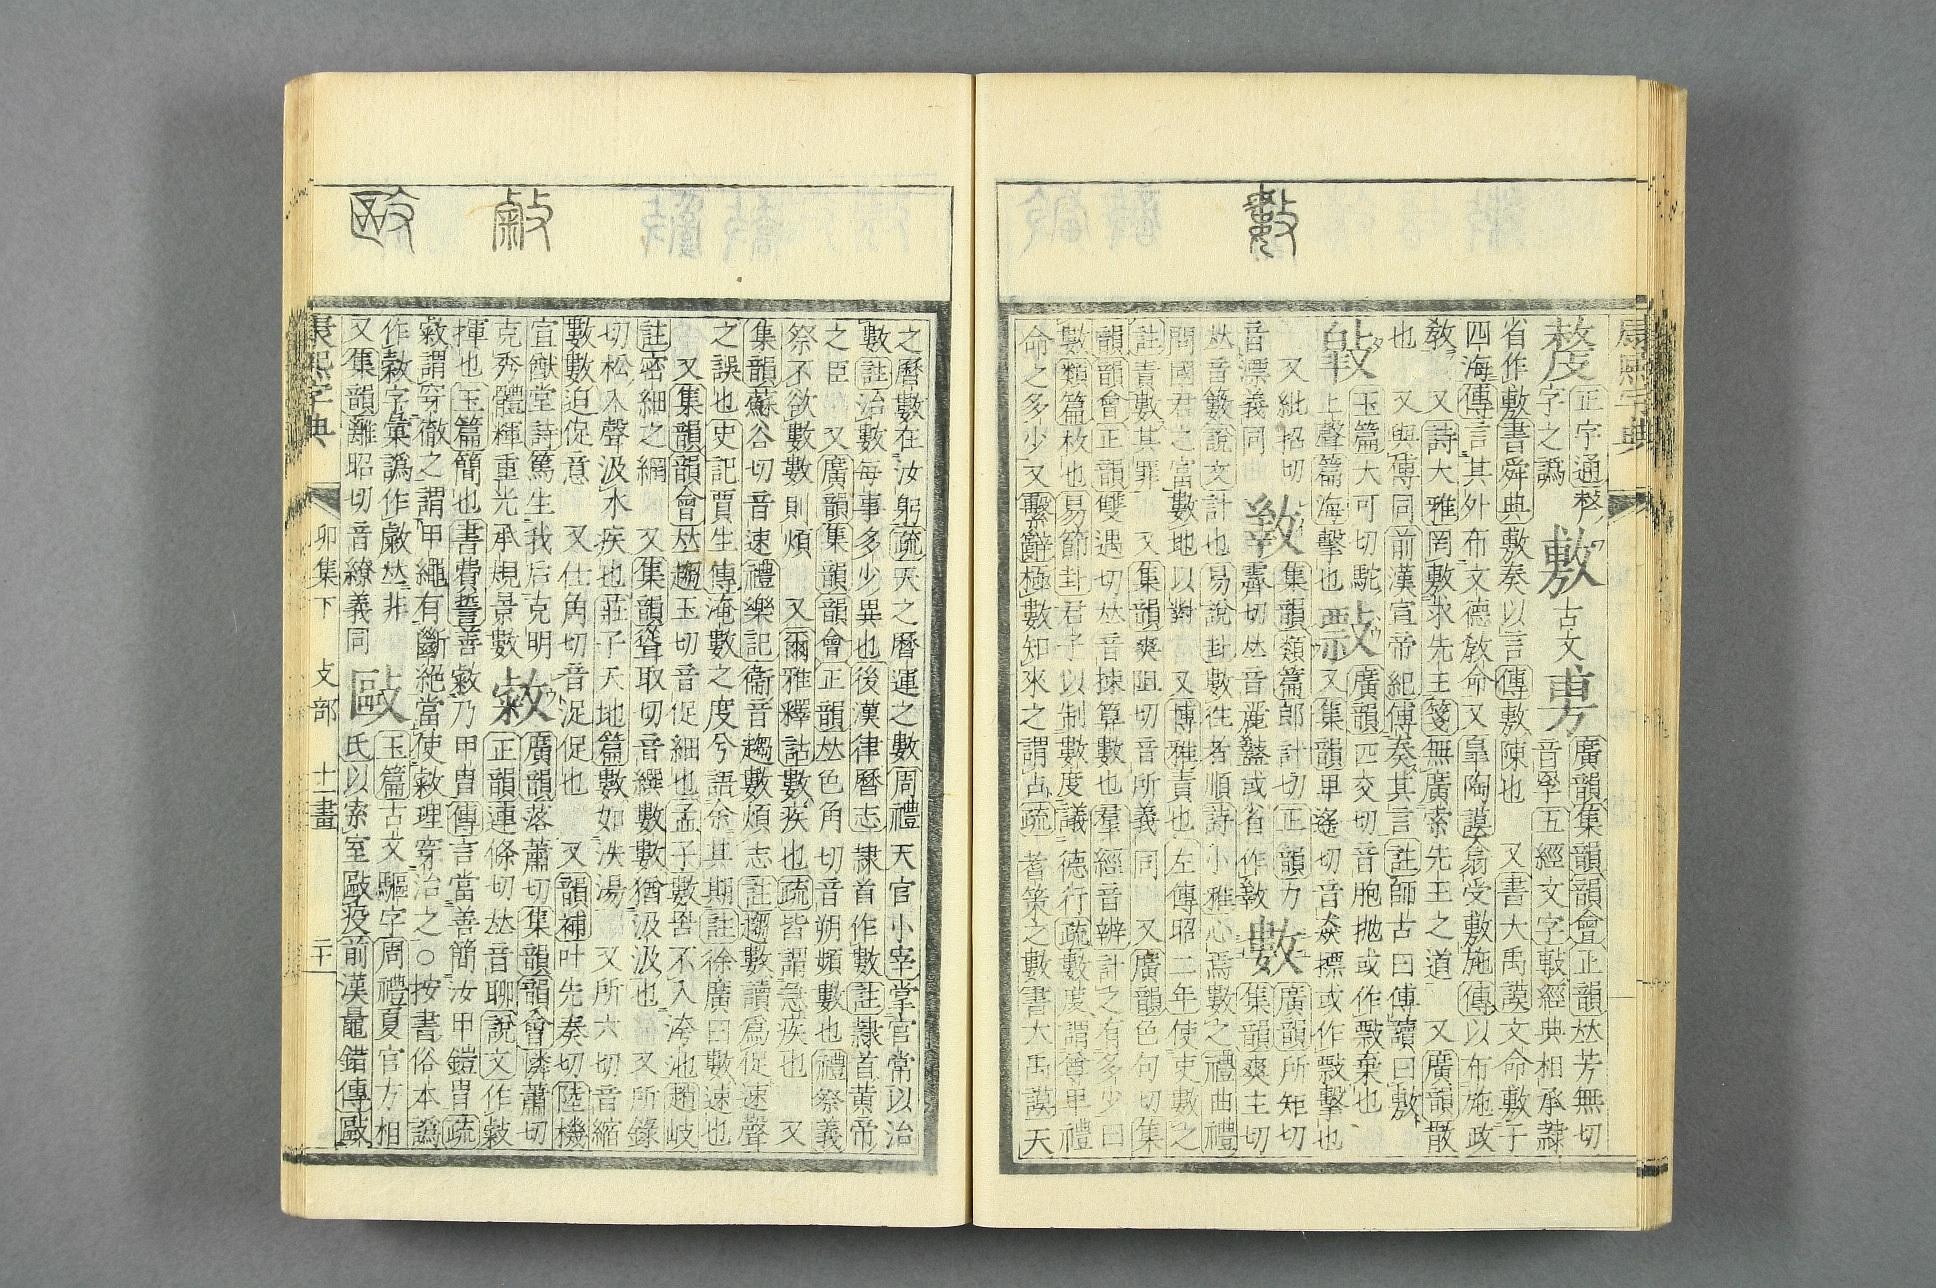 數
康熙字典
正字通整
字之譌 敷 古文 旉 廣韻集韻韻會正韻𠀤芳無切
音孚五經文字敷經典相承隷
省作敷書舜典敷奏以言傳敷陳也 又書大禹謨文命敷于
四海傳言其外布文德敎命又皐陶謨翕受敷施傳以布施政
敎 又詩大雅罔敷求先王箋無廣索先王之道 又廣韻散
也 又與傅同前漢宣帝紀傅奏其言註師古曰傅讀曰敷
玉篇大可切駝
上聲篇海擊也 敽 廣韻匹交切音胞抛或作敽棄也
又集韻卑遙切音猋摽或作敽擊也
又紕招切
音漂義同 集韻類篇郎計切正韻力
霽切𠀤音麗盭或省作 數 廣韻所矩切
集韻爽主切
𠀤音籔說文計也易說卦數往者順詩小雅心焉數之禮曲禮
問國君之富數地以對 又博雅責也左傳昭二年使吏數之
註責數其罪 又集韻爽阻切音所義同 又廣韻色句切集
韻韻會正韻雙遇切𠀤音捒算數也羣經音辨計之有多少曰
數類篇枚也易節卦君子以制數度議德行疏數度謂尊卑禮
命之多少又繫辭極數知來之謂占疏蓍策之數書大禹謨天
敹 敺
之曆數在汝躬疏天之曆運之數周禮天官小宰掌官常以治
數註治數每事多少異也後漢律曆志隷首作數註隷首黃帝
之臣 又廣韻集韻韻會正韻𠀤色角切音朔頻數也禮祭義
祭不欲數數則煩 又爾雅釋詁數疾也疏皆謂急疾也 又
集韻蘇谷切音速禮樂記衞音趨數煩志註趨數讀爲促速聲
之誤也史記賈生傳淹數之度兮語余其期註徐廣曰數速也
又集韻韻會𠀤趨玉切音促細也孟子數罟不入洿池趙岐
註密細之網 又集韻聳取切音䌂數數猶汲汲也 又所錄
切松入聲汲水疾也莊子天地篇數如泆湯 又所六切音縮
數數迫促意 又仕角切音浞促也 又韻補叶先奏切陸機
宜猷堂詩篤生我后克明
克秀體輝重光承規景數 敹 廣韻落蕭切集韻韻會憐蕭切
正韻連條切𠀤音聊說文作敹
揮也玉篇簡也書費誓善敹乃甲冑傳言當善簡汝甲鎧冑疏
敹謂穿徹之謂甲繩有斷絕當使敹理穿治之○按書俗本譌
作敹字彙譌作𠀤非
又集韻離昭切音繚義同 敺 玉篇古文驅字周禮夏官方相
氏以索室敺疫前漢鼂錯傳敺
康熙字典 卯集下 攴部 十一畫 二十